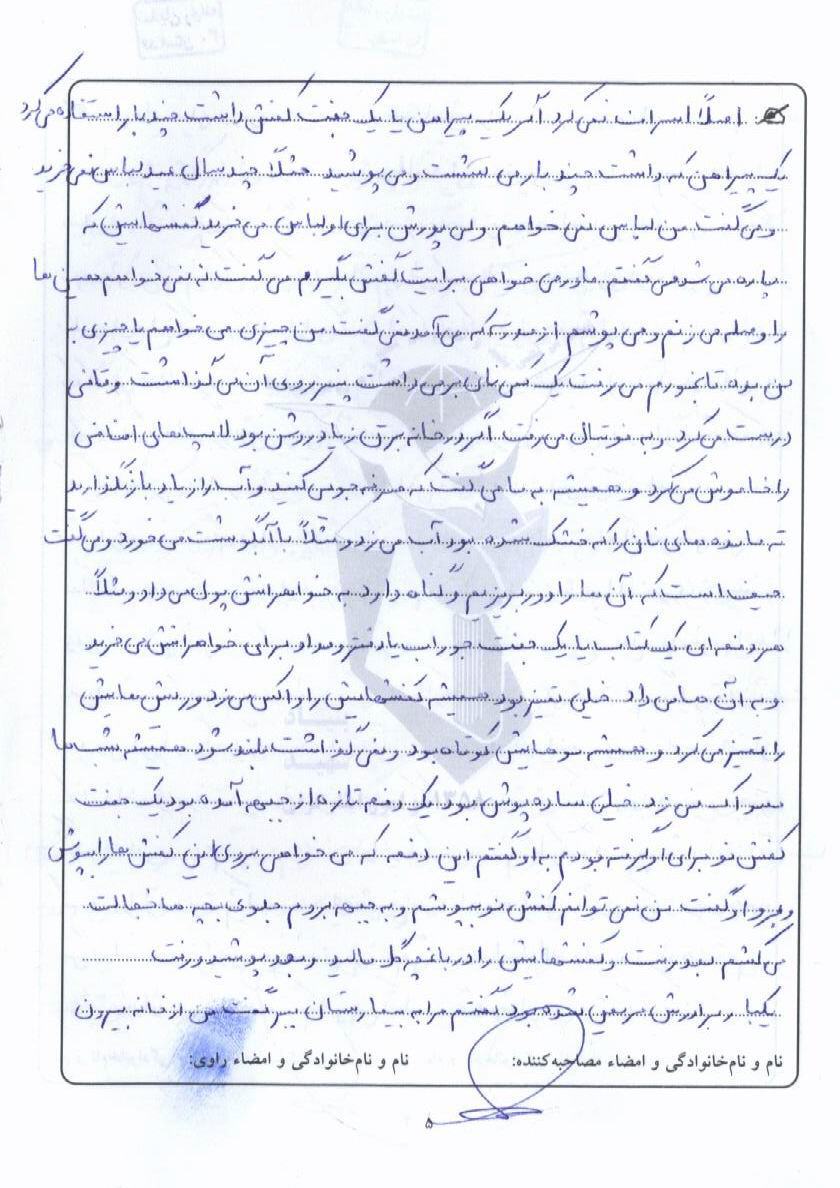 اصلاً اسراف نمی کرد اگر یک پیراهن یا یک جفت کفش داشت چند بار استفاده می کرد
یک پیراهن که داشت چند بار می شست و می پوشید مثلاً چند سال عید لباس نمی خرید
و می گفت من لباس نمی خواهم ولی پدرش برای او لباس می خرید کفشهایش که
پاره می شد می گفتم مادر می خواهی برایت کفش بگیرم می گفت نه نمی خواهم همین ها
را وصله می زنم و می پوشم از مدرسه که می آمد نمی گفت من چیزی می خواهم یا چیزی به
من بده تا بخورم می رفت یک کمی نان بر می داشت پنیر روی آن می گذاشت و قاتی
درست می کرد و به فوتبال می رفت اگر در خانه برق زیاد روشن بود لامپ های اضافی
را خاموش می کرد و همیشه به ما می گفت که صرفه جویی کنید و آب را زیاد باز نگذارید
ته مانده های نان را که خشک شده بود آب می زد و مثلاً با آبگوشت می خورد و می گفت
حیف است که آن ها را دور بریزیم و گناه دارد به خواهرانش پول می داد و مثلاً
هر دفعه ای یک کتاب یا یک جفت جوراب یا دفتر و مداد برای خواهرانش می خرید
و به آن ها می داد خیلی تمیز بود همیشه کفشهایش را واکس می زد و ریش هایش
را تمیز می کرد و همیشه موهایش کوتاه بود و نمی گذاشت بلند شود همیشه شب ها
مسواک می زد خیلی ساده پوش بود یک دفعه تازه از جبهه آمده بود یک جفت
کفش نو برای او گرفته بودم به او گفتم این دفعه که می خواهی بروی این کفش ها را بپوش
و برو او گفت من نمی توانم کفش نو بپوشم و به جبهه بروم جلوی بچه ها خجالت
می کشم بعد رفت و کفشهایش را در باغچه گل مالید و بعد پوشید و رفت
یکبار برادرش مریض شده بود گفتم مرا به بیمارستان ببر گفت من از خانه بیرون
نام و نام‌خانوادگی و امضاء مصاحبه‌کننده: نام و نام‌خانوادگی و امضاء راوی:
۵